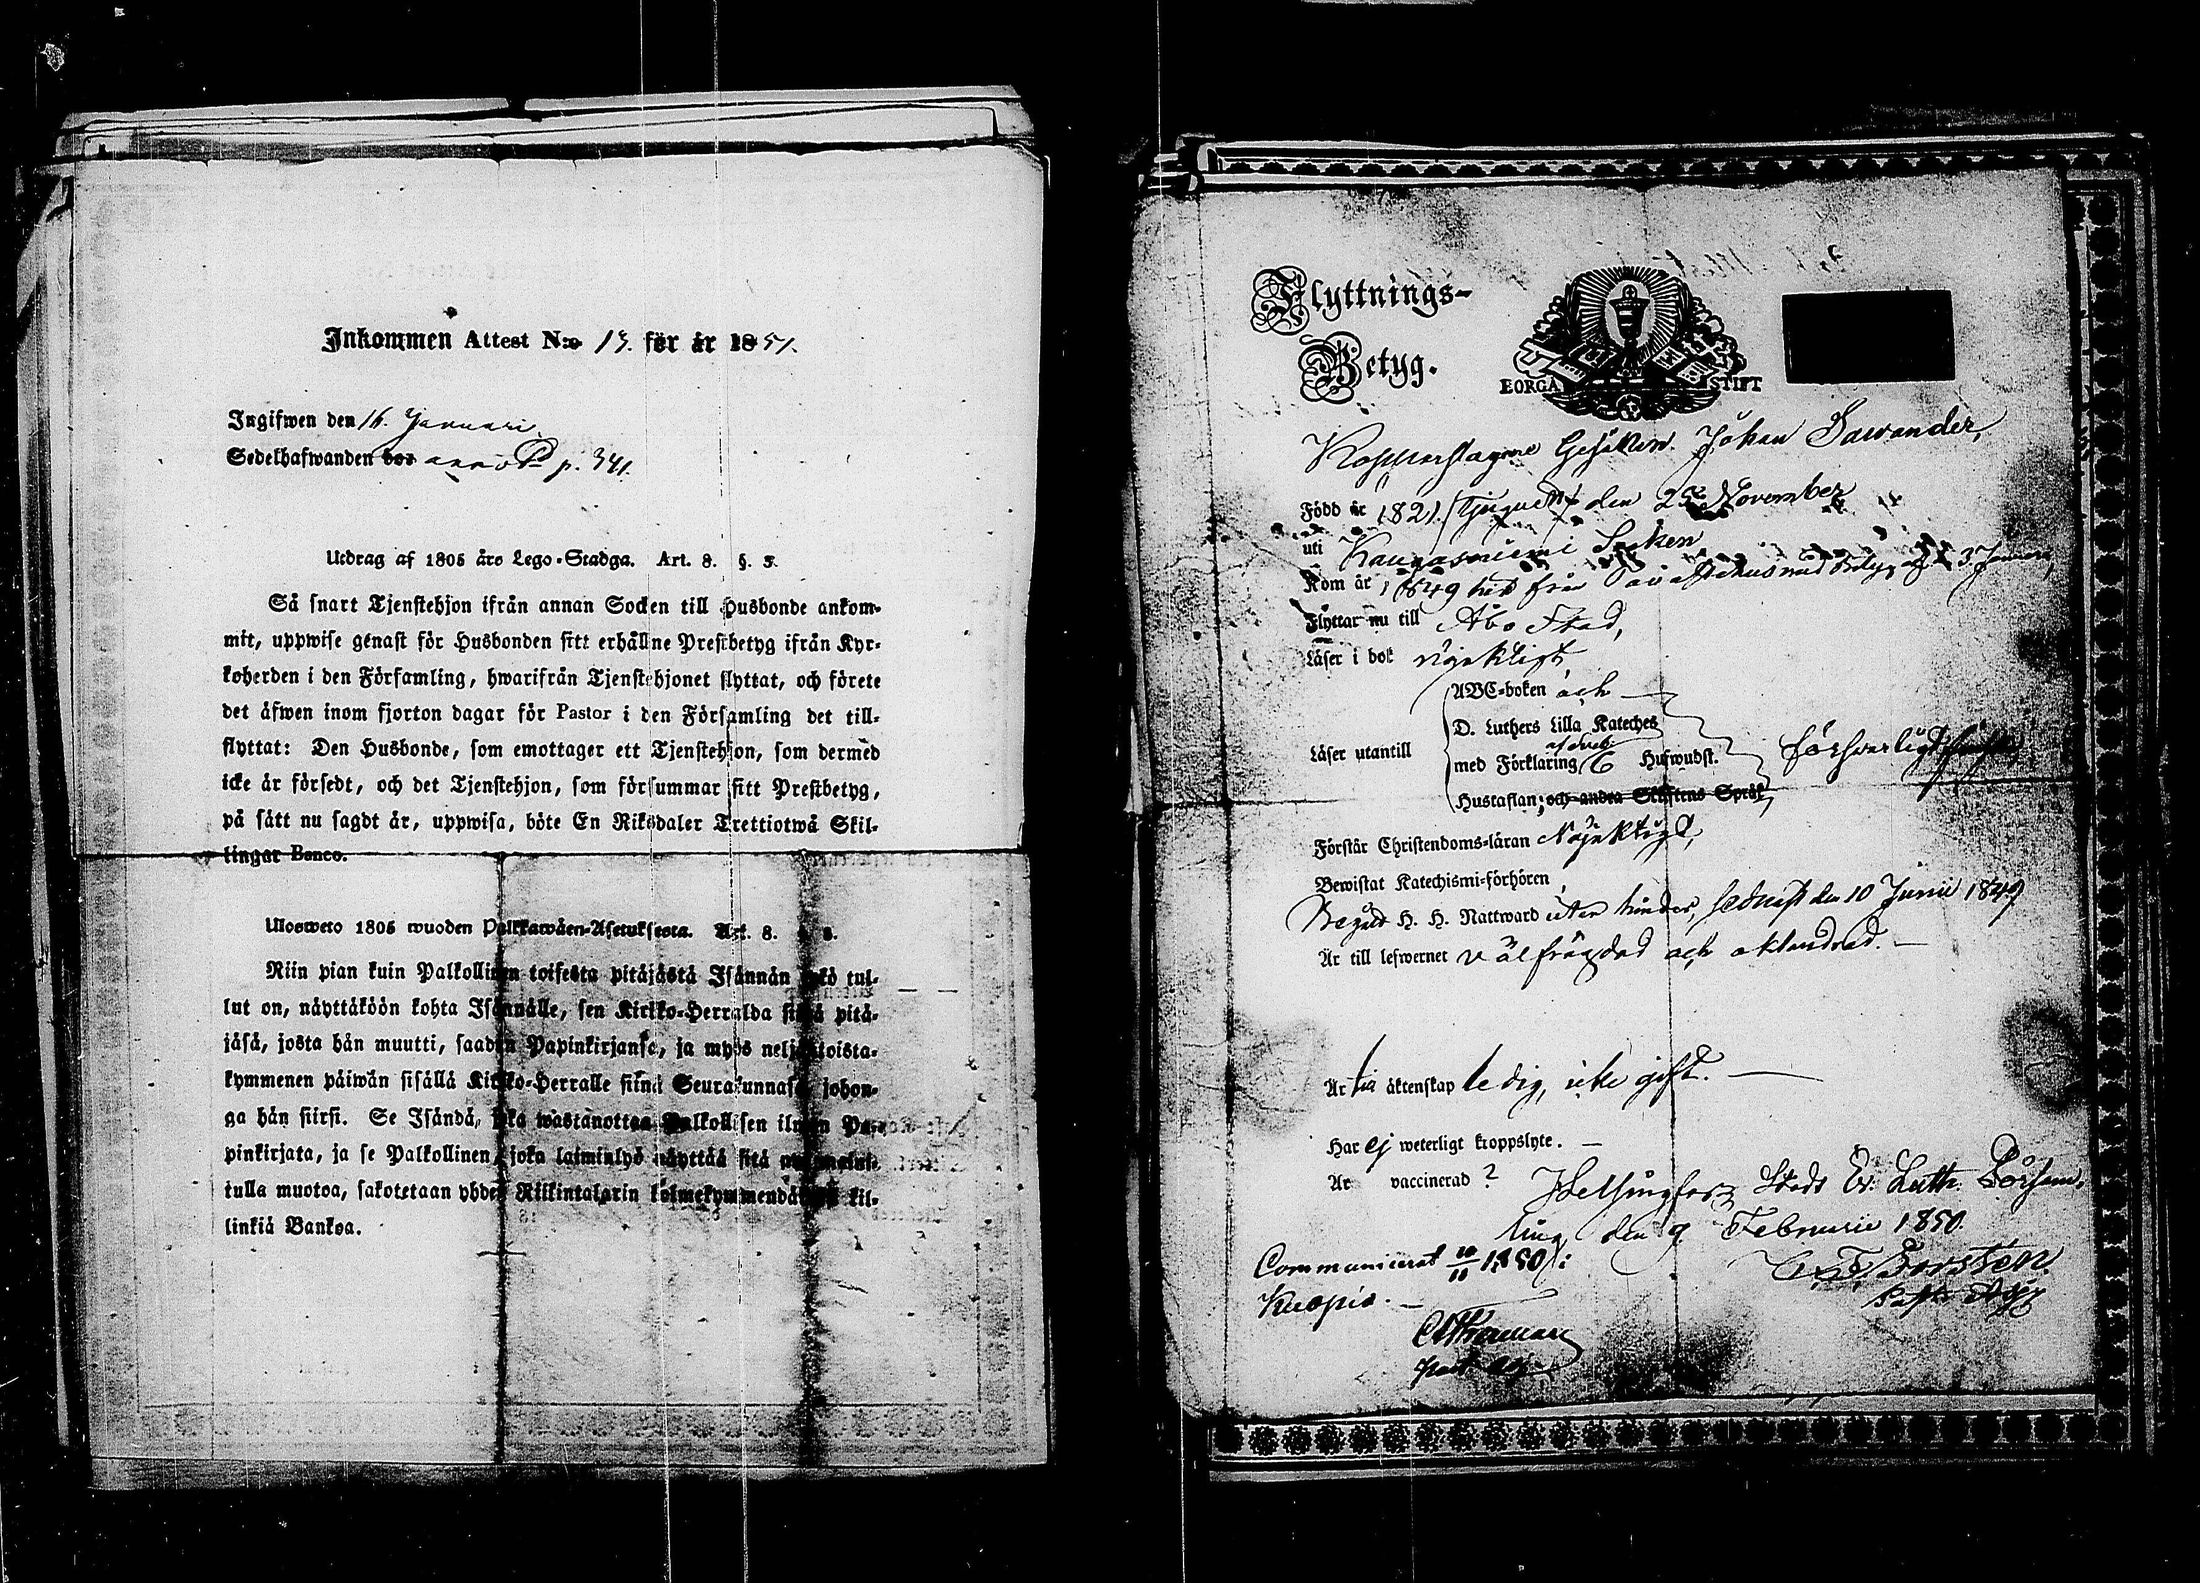 Inkommen Attest N:o 13. för år 1851.
Ingifwen den 16. Januari.
Sedelhafwanden bor anno p. 341.
Utdrag af 1805 års Lego-Stadga. Art. 8. §. 5.
Så snart Tjenstehjon ifrån annan Socken till Husbonde ankom-
mit, uppwise genast för Husbonden sitt erhållne Prestbetyg ifrån Kyr-
koherden i den Församling, hwarifrån Tjenstehjonet flyttat, och förete
det äfwen inom fjorton dagar för Pastor i den Församling det till-
flyttat: Den Husbonde, som emottager ett Tjenstehjon, som dermed
icke är försedt, och det Tjenstehjon, som försummar sitt Prestbetyg,
på sätt nu sagdt är, uppwisa, böte En Riksdaler Trettiotwå Skil-
lingar Banco.
Ulosweto 1805 wuoden Palkkawäen-Asetuksesta. Art. 8.
Niin pian kuin Palkollinen toisesta pitäjästä Isännän tykö tul-
lut on, näyttäköön kohta Isännälle, sen Kirkko-Herralda siinä pitä-
jäsä, josta hän muutti, saadun Papinkirjansa, ja myös neljäntoista-
kymmenen päiwän sisällä Kirkko-Herralle siinä Seurakunnasa, johon-
ga hän siirsi. Se Isändä, joka wastanottaa Palkollisen ilman Pa-
pinkirjata, ja se Palkollinen, joka laiminlyö näyttää sitä
tulla muotoa, sakotetaan yhden Riikintalarin kolmekymmendä kil-
linkiä Bankoa.
Flyttnings-
Betyg.
BORGÅ STIFT
Kopparslagare Gesällen Johan Sawander,
Född år 1821 (tjuguett) den 25 November
uti Kangasniemi Socken
Kom år 1849 hit från Tavastehus med Betyg af d. 3 Januari,
Flyttar nu till Åbo Stad,
Läser i bok nöjaktigt
Läser utantill
ABC-boken och
D. Luthers Lilla Kateches
med Förklaring 6 Hufwudst.
Hustaflan; och andra Skriftens Språk,
försvarligt
Förstår Christendoms-läran Nöjaktigt,
Bewistat Katechismi-förhören
Begått H. H. Nattward utan hinder, sednast den 10 Junii 1849
Är till lefwernet välfrägdad och oklandrad. —
Är till äktenskap ledig, icke gift. —
Har ej weterligt kroppslyte. —
Är vaccinerad ? Helsingfors Stads Ev. Luth. Försam-
ling den 9 Februarii 1850.
Communicerat 10/11 1850 i
Kuopio. —
Forstén